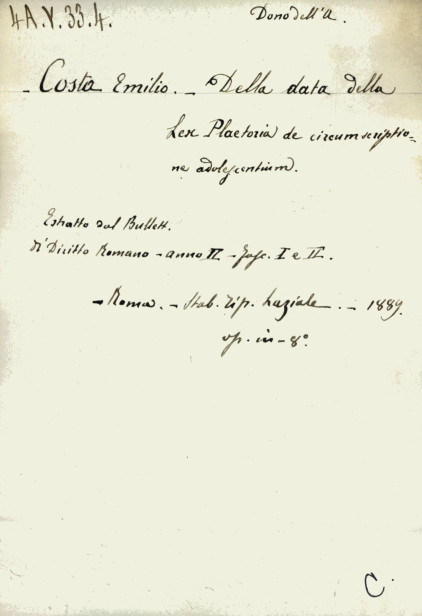 4A.V.33.4.
Dono dell'A.
- Costa Emilio. - Della data della
Lex Plaetoria de circumscriptio-
ne adolescentium.
Estratto dal Bullett.
di Diritto Romano - anno II - Fasc. I e II.
- Roma. - Stab. Tip. Laziale. - 1889.
op. in - 8°
C.